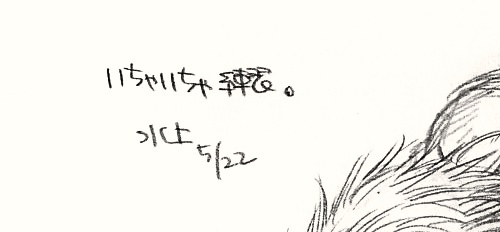 いちゃいちゃ練習。
水上
5/22